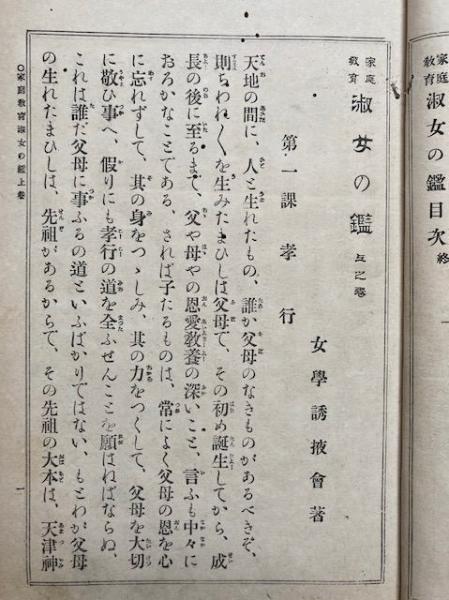 家庭教育 淑女の鑑目次 終
家庭教育 淑女の鑑 上之巻
女學誘掖會著
第一課 孝行
天地の間に、人と生れたもの、誰か父母のなきものがあるべきぞ、
則ちわれ〳〵を生みたまひしは父母で、その初め誕生してから、成
長の後に至るまで、父や母やの恩愛教養の深いこと、言ふも中々に
おろかなことである、されば子たるものは、常によく父母の恩を心
に忘れずして、其の身をつゝしみ、其の力をつくして、父母を大切
に敬ひ事へ、假りにも孝行の道を全ふせんことを願はねばならぬ、
これは誰だ父母に事ふるの道といふばかりではない、もとわが父母
の生れたまひしは、先祖があるからで、その先祖の大本は、天津神
〇家庭教育淑女の鑑上卷
一